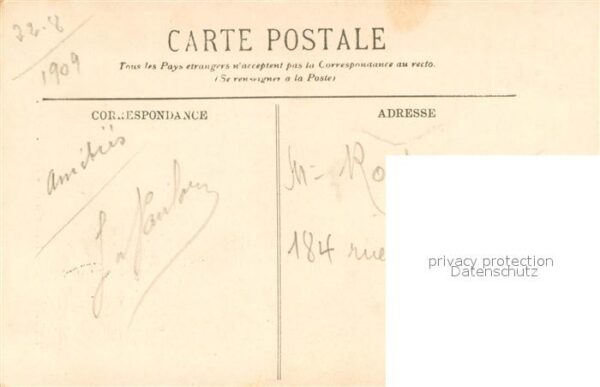 22-8
1909
CARTE POSTALE
Tous les Pays étrangers n'acceptent pas la Correspondance au recto.
(Se renseigner à la Poste)
CORRESPONDANCE
ADRESSE
Amitiés
184 rue
privacy protection
Datenschutz